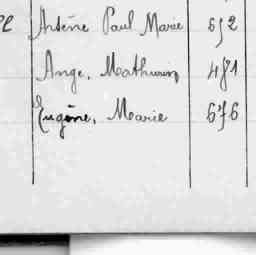 Arsène Paul Marie 652
Ange, Mathurin 471
Eugène, Marie 676